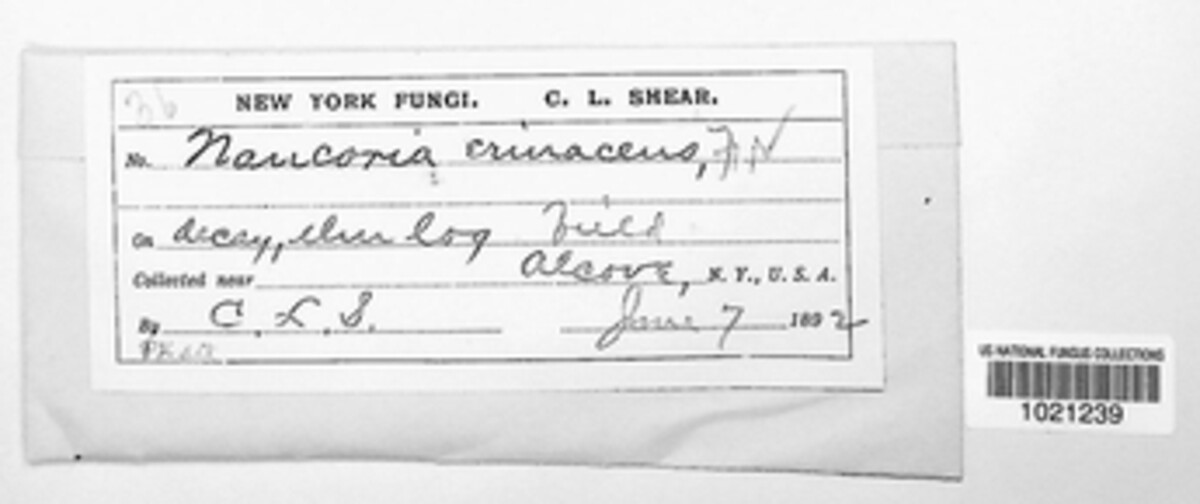 36 NEW YORK FUNGI. C. L. SHEAR.
No. Naucoria erinaceus, Fr
on decay, elm log Field
Collected near Alcove, N. Y., U. S. A.
By C. L. S. June 7 1892
US NATIONAL FUNGUS COLLECTIONS
1021239